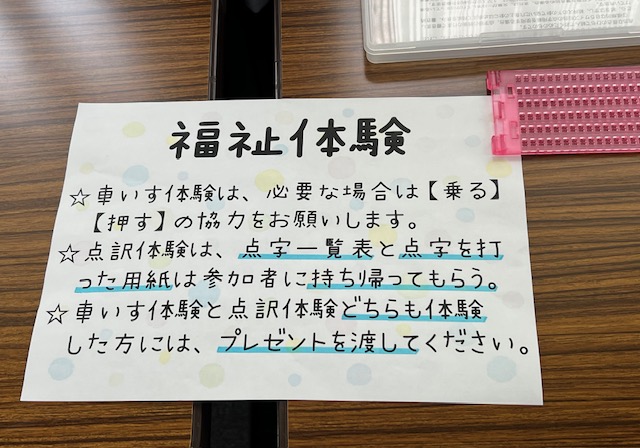 福祉体験
☆車いす体験は、必要な場合は【乗る】
【押す】の協力をお願いします。
☆点訳体験は、点字一覧表と点字を打
った用紙は参加者に持ち帰ってもらう。
☆車いす体験と点訳体験どちらも体験
した方には、プレゼントを渡してください。